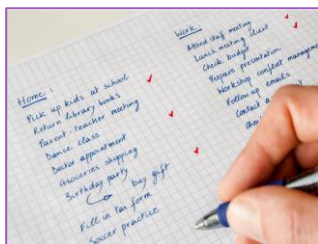 Home:
Pick up kids at school
Return library books
Parent-teacher meeting
Dance class
Doctor appointment
Groceries shopping
Birthday party
buy gift
Fill in tax form
Soccer practice
Work:
Attend staff meeting
Lunch meeting client
Check budget
Prepare presentation
Workshop conflict management
Follow up emails
Contact a